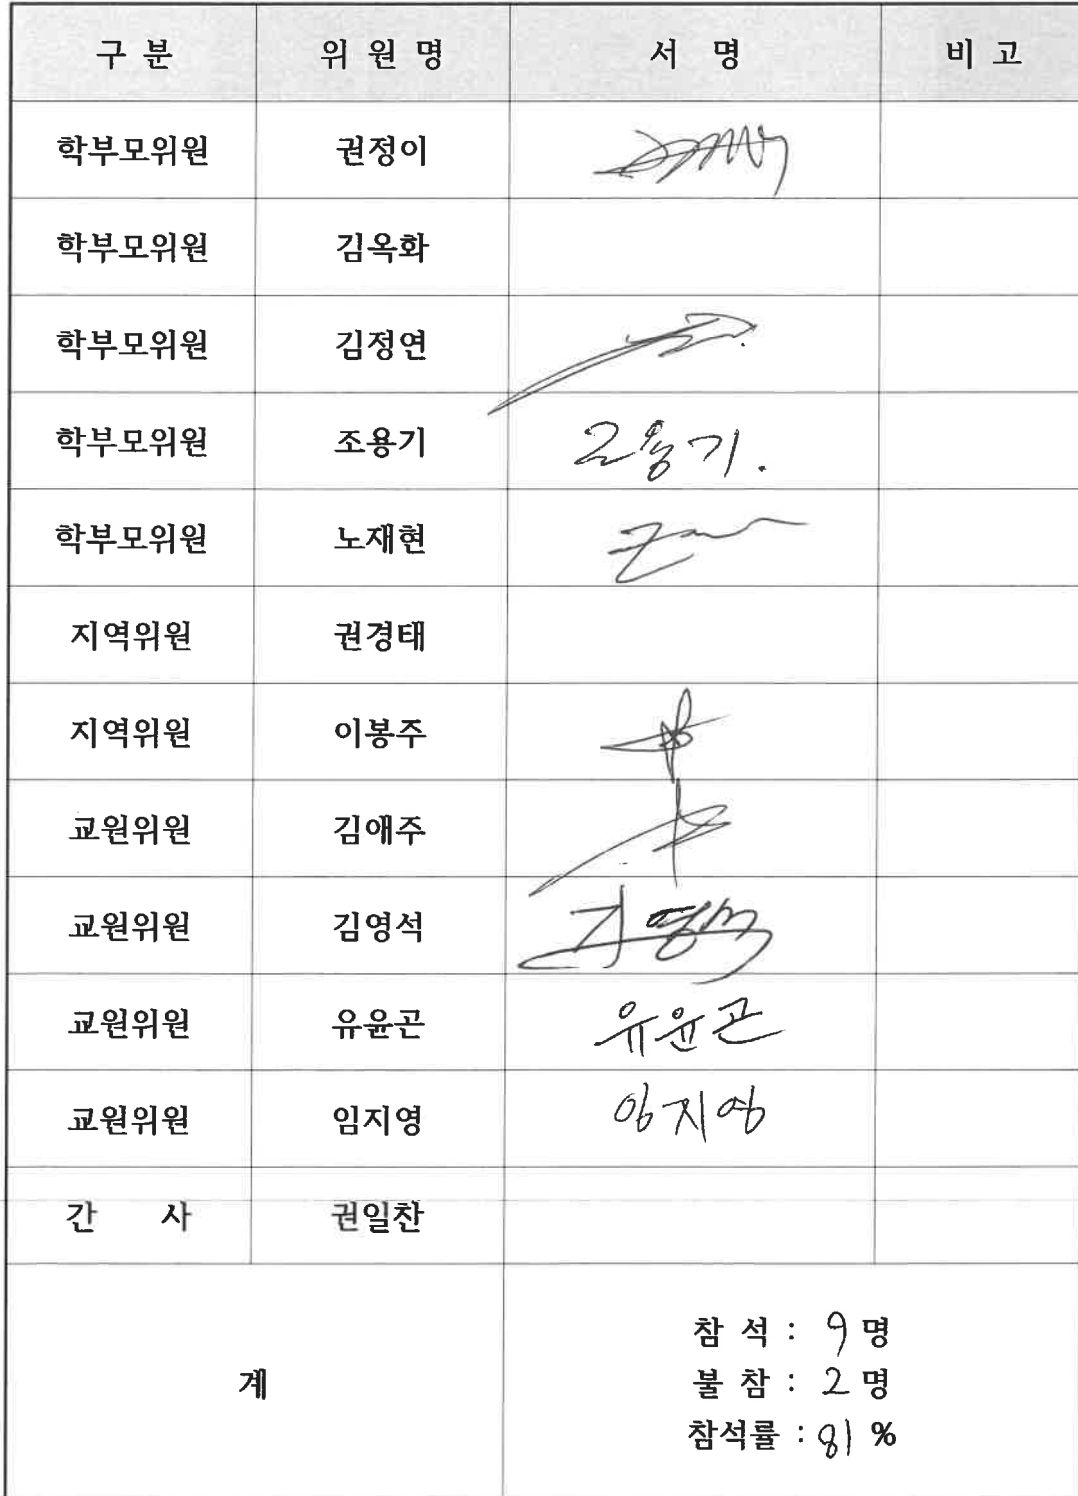 구 분 위 원 명 서 명 비 고
학부모위원 권정이
학부모위원 김옥화
학부모위원 김정연
학부모위원 조용기 조용기.
학부모위원 노재현
지역위원 권경태
지역위원 이봉주
교원위원 김애주
교원위원 김영석 김영석
교원위원 유윤곤 유윤곤
교원위원 임지영 임지영
간 사 권일찬
계
참 석 : 9 명
불 참 : 2 명
참석률 : 81 %